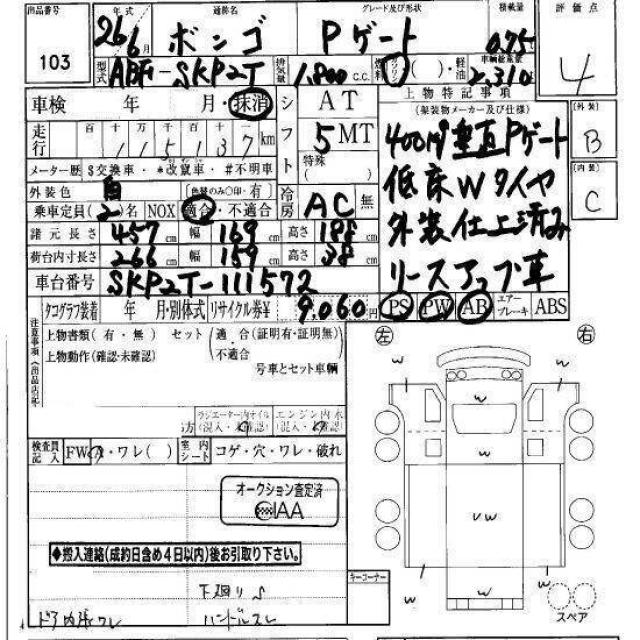 出品番号 年式 通称名 グレード及び形状 積載量 評価点
103 26 6月 ボンゴ Pゲート 0.75t 4
型式 ABF-SKP2T 排気量 1.800 c.c. 燃料 ガソリン・( )・軽油 車輌総重量 2.310
車検 年 月・抹消 シフト AT 上物特記事項
(架装物メーカー及び仕様) [外装] B
走行 百十万千百十 115137 km 5MT 400㎏垂直Pゲート
メーター歴 $交換車・*改鼠車・#不明車 特殊( ) 低床Wタイヤ [内装] C
外装色 白 (色替のみ○印・有) 冷房 AC 無
乗車定員(2)名 NOX 適合・不適合 外装仕上済み
諸元長さ 457cm 幅 169cm 高さ 198cm
荷台内寸長さ 266cm 幅 159cm 高さ 38cm リースアップ車
車台番号 SKP2T-111572
タコグラフ装着 年 月・別体式 リサイクル券¥ 9.060円 PS PW AB エアーブレーキ ABS
注意事項(出品店記入)
上物書類(有・無) セット(適合(証明有・証明無)
上物動作(確認・未確認) ・不適合
号車とセット車輌 左 右
ラジエーター内オイル エンジン内水
(混入・未確認) (混入・未確認)
検査員記入 FWA・ワレ( ) 室内シート コゲ・穴・ワレ・破れ
オークション査定済
CIAA
◆搬入連絡(成約日含め4日以内)後お引取り下さい。
下廻りS キーコーナー
ドア内張ワレ ハンドルスレ
w w
w
w w w
vw
w w w
スペア